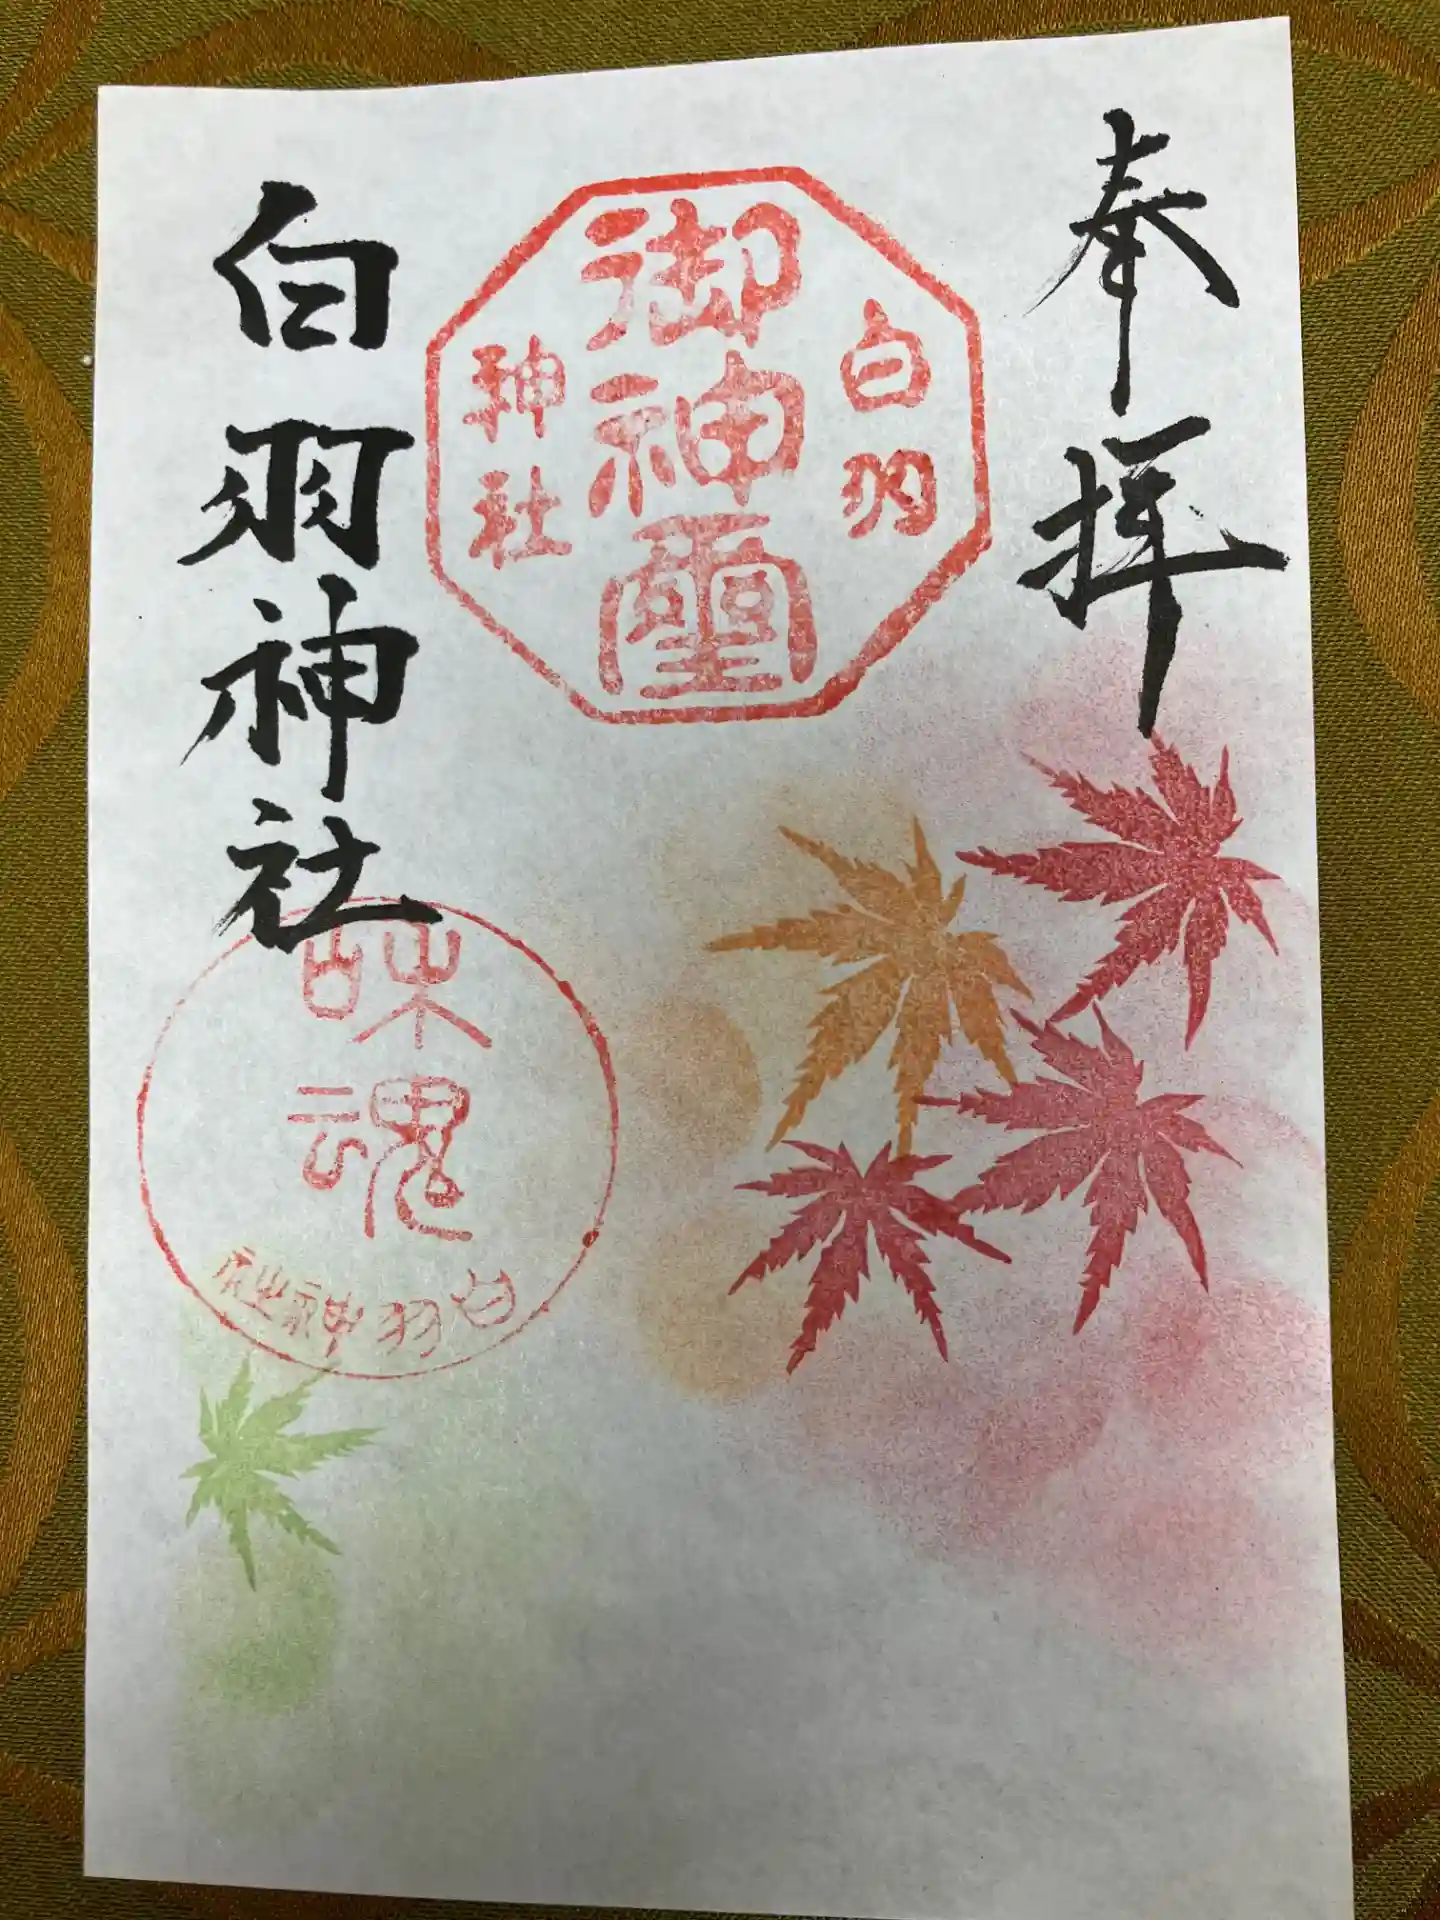 奉拝
白羽
御神璽
神社
白羽神社
味魂
白羽神社